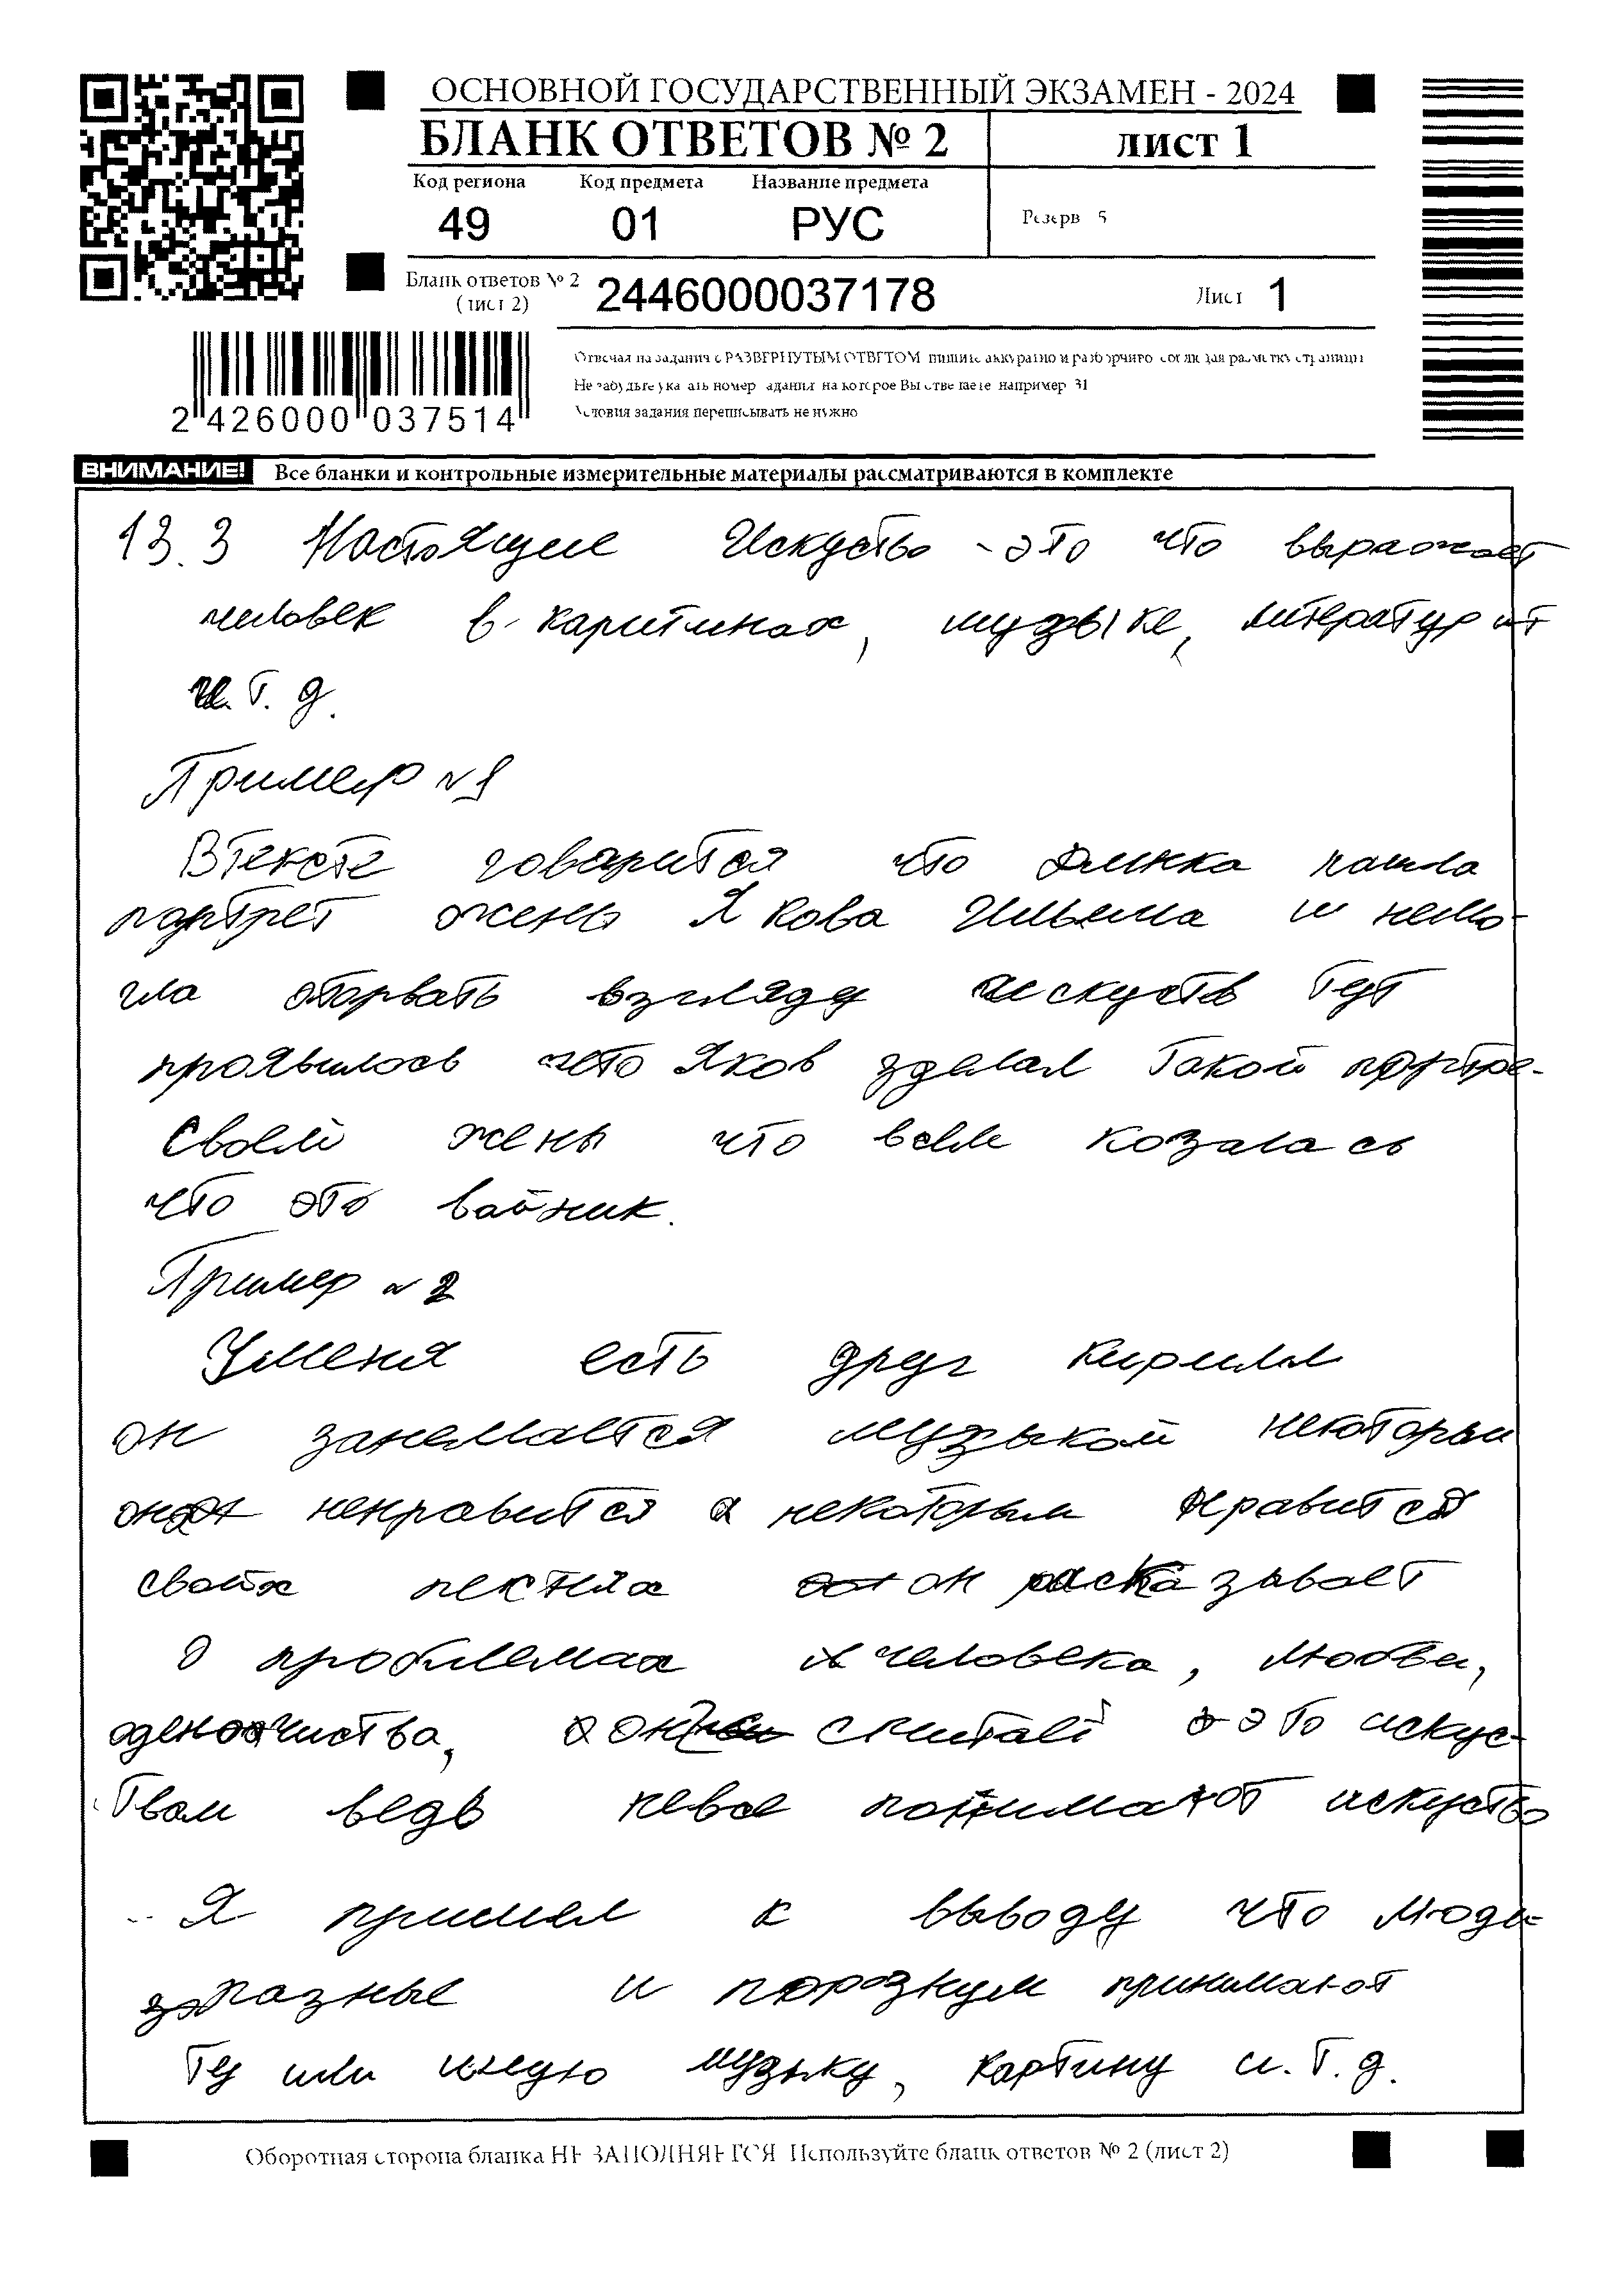 ОСНОВНОЙ ГОСУДАРСТВЕННЫЙ ЭКЗАМЕН - 2024
БЛАНК ОТВЕТОВ № 2
лист 1
Код региона Код предмета Название предмета
49 01 РУС
Резерв 5
Бланк ответов № 2
(лист 2)
2446000037178
Лист 1
2 426000 037514
Отвечая на задания с РАЗВЕРНУТЫМ ОТВЕТОМ пишите аккуратно и разборчиво соблюдая разметку страницы
Не забудьте указать номер задания на которое Вы отвечаете например 31
Условия задания переписывать не нужно
ВНИМАНИЕ! Все бланки и контрольные измерительные материалы рассматриваются в комплекте
13.3 Настоящие Искуство - это что выражает
человек в каритинах, музыке, литератур ит
и. т. д.
Пример №1
Втексте говарится что Димка нашла
портрет жены Якова Ильина и немо-
гла оторвать взгляду искуств тут
проявилось что Яков зделал такой портре-
своей жены что всем козалась
что это
Пример № 2
Уменя есть друг Кирилл
он занемается музыкой некоторым
она ненравится а некоторым нравится
своих песнях он расказывает
о проблемах человека, любви,
оденочиства, а они считаli это искус-
твам ведь невсе понимают искуство
Я пришел к выводу что люди
разные и поразнум принимают
ту или иную музыку, картину и. т. д.
Оборотная сторона бланка НЕ ЗАПОЛНЯЕТСЯ Используйте бланк ответов № 2 (лист 2)